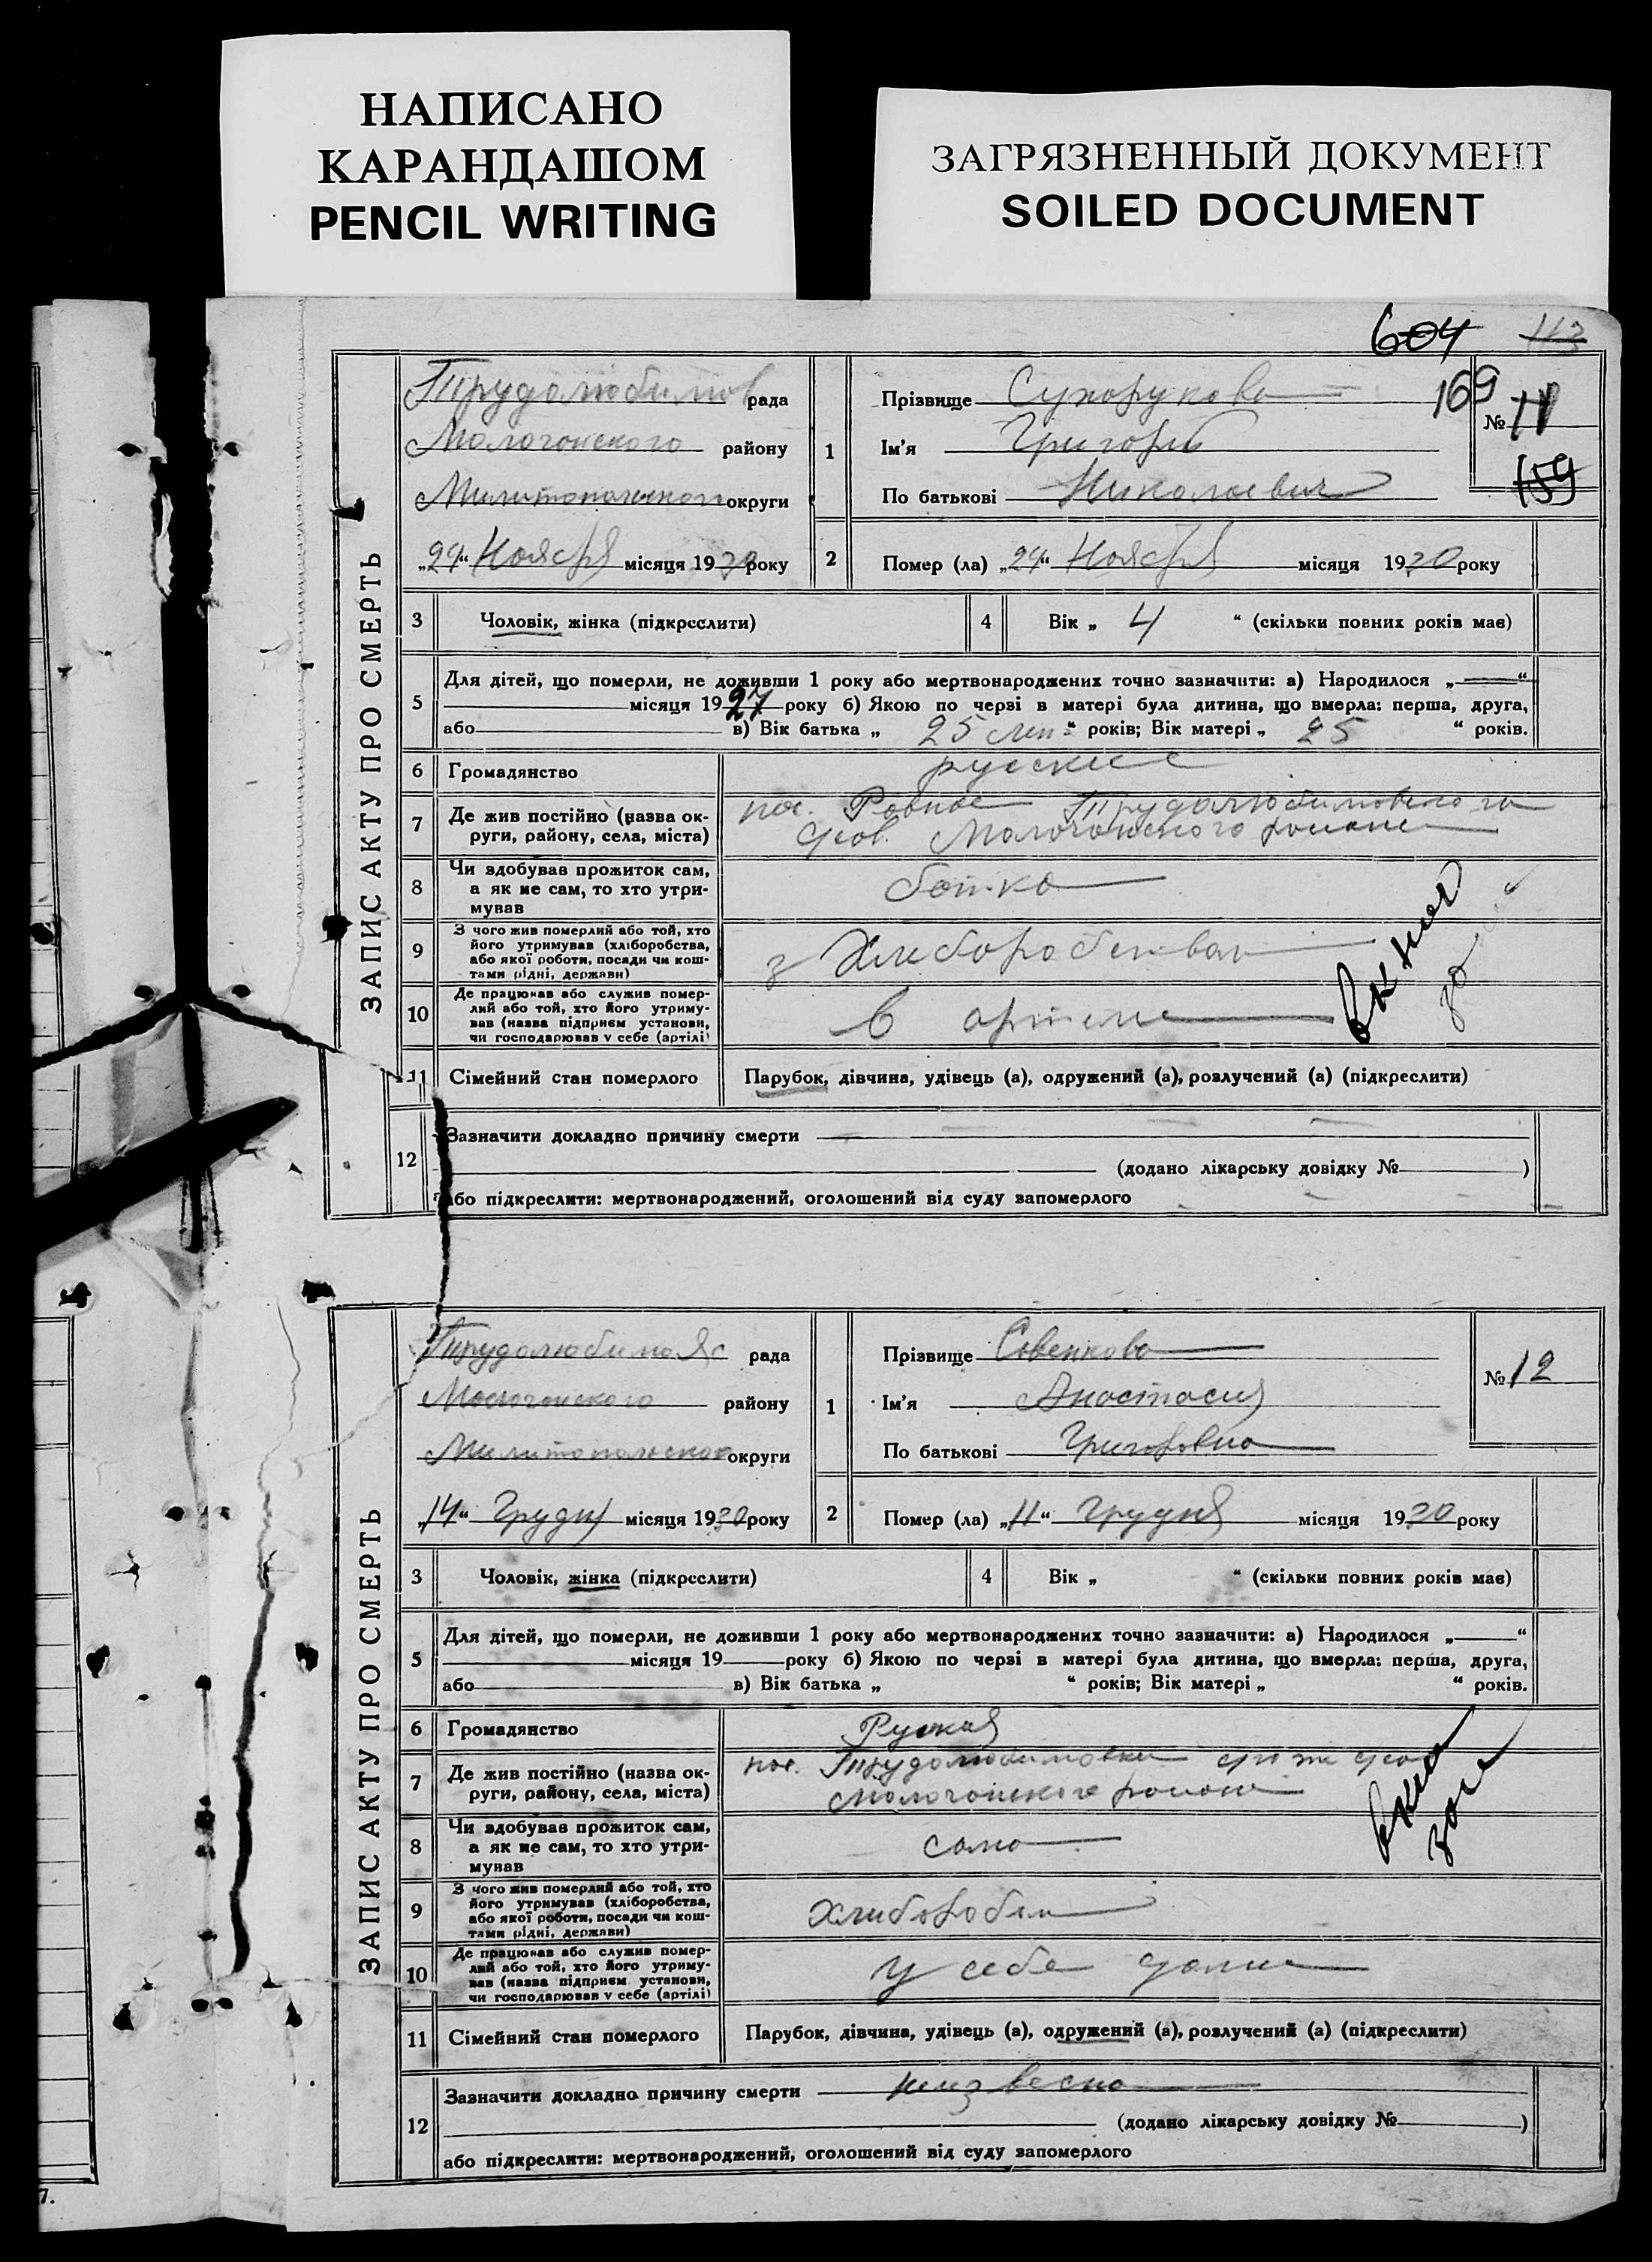 НАПИСАНО
КАРАНДАШОМ
PENCIL WRITING
ЗАГРЯЗНЕННЫЙ ДОКУМЕНТ
SOILED DOCUMENT
604 113
ЗАПИС АКТУ ПРО СМЕРТЬ
Трудолюбимов рада
Молочонского району
округи
„29“ Ноября місяця 1930 року
1
Прізвище Сухорукова
Ім'я Григорий
По батькові Николаевич
169
№ 11
159
2 Помер (ла) „29“ Ноября місяця 1930 року
3 Чоловік, жінка (підкреслити)
4 Вік „ 4 “ (скільки повних років має)
5 Для дітей, що померли, не доживши 1 року або мертвонароджених точно зазначити: а) Народилося „ “
місяця 1927 року б) Якою по черзі в матері була дитина, що вмерла: перша, друга,
або в) Вік батька „ 25 лет “ років; Вік матері „ 25 “ років.
6 Громадянство русские
7 Де жив постійно (назва ок-
руги, району, села, міста)
пос. Ровное Трудолюбимовского
Молочонского района
8 Чи здобував прожиток сам,
а як не сам, то хто утри-
мував
батко
9 З чого жив померлий або той, хто
його утримував (хліборобства,
або якої роботи, посади чи кош-
тами рідні, держави)
з
10 Де працював або служив помер-
лий або той, хто його утриму-
вав (назва підприєм установи,
чи господарював у себе (артілі)
в артели
11 Сімейний стан померлого Парубок, дівчина, удівець (а), одружений (а), розлучений (а) (підкреслити)
12 Зазначити докладно причину смерти
(додано лікарську довідку № )
або підкреслити: мертвонароджений, оголошений від суду запомерлого
ЗАПИС АКТУ ПРО СМЕРТЬ
рада
Молочонского району
округи
„14“ Грудня місяця 1930 року
1
Прізвище
Ім'я Анастасия
По батькові Григоровна
№ 12
2 Помер (ла) „11“ грудня місяця 1930 року
3 Чоловік, жінка (підкреслити)
4 Вік „ “ (скільки повних років має)
5 Для дітей, що померли, не доживши 1 року або мертвонароджених точно зазначити: а) Народилося „ “
місяця 19 року б) Якою по черзі в матері була дитина, що вмерла: перша, друга,
або в) Вік батька „ “ років; Вік матері „ “ років.
6 Громадянство Руская
7 Де жив постійно (назва ок-
руги, району, села, міста)
пос. Трудолюбимовки
Молочонского района
8 Чи здобував прожиток сам,
а як не сам, то хто утри-
мував
сама
9 З чого жив померлий або той, хто
його утримував (хліборобства,
або якої роботи, посади чи кош-
тами рідні, держави)
10 Де працював або служив помер-
лий або той, хто його утриму-
вав (назва підприєм установи,
чи господарював у себе (артілі)
у себе дома
11 Сімейний стан померлого Парубок, дівчина, удівець (а), одружений (а), розлучений (а) (підкреслити)
12 Зазначити докладно причину смерти неизвесно
(додано лікарську довідку № )
або підкреслити: мертвонароджений, оголошений від суду запомерлого
7.